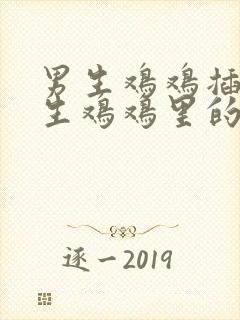 男生鸡鸡插
生鸡鸡里的
逐一2019